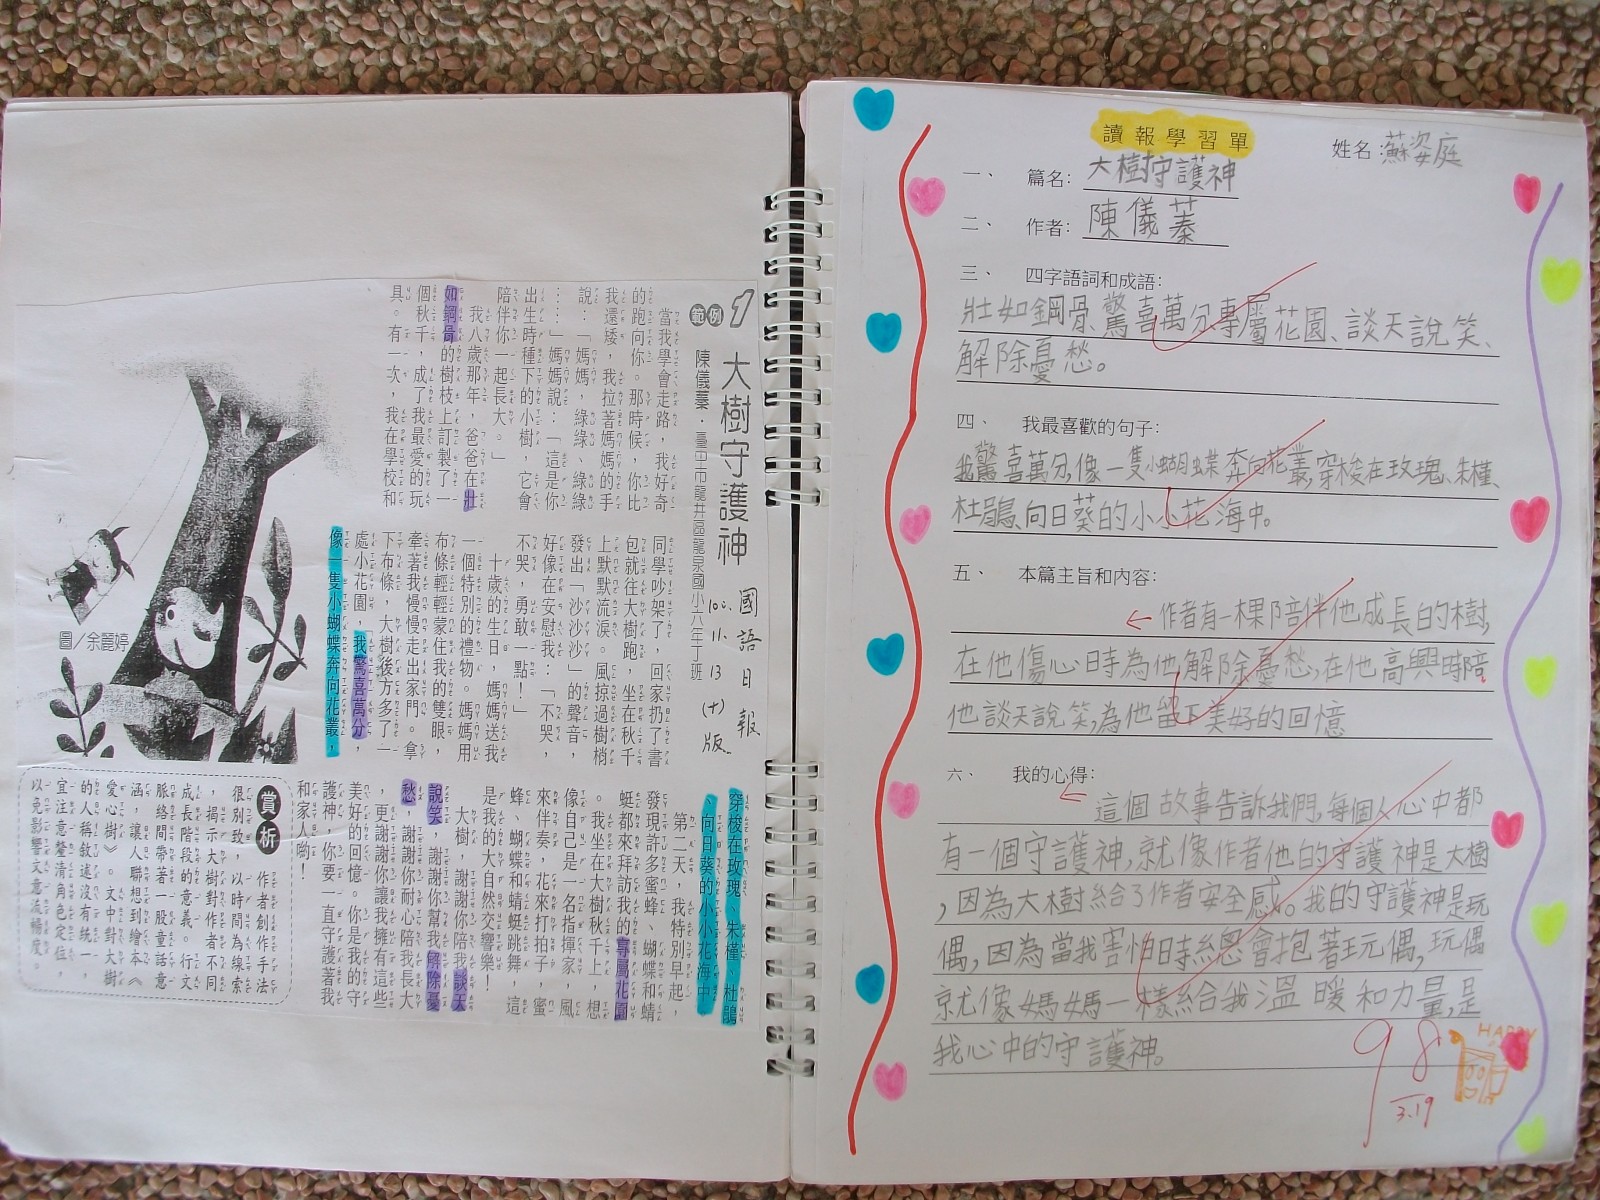 1
範例
大樹守護神
陳儀蓁・臺中市龍井區龍泉國小六年丁班
國語日報
100.11.13(十)版
當我學會走路，我好奇
的跑向你。那時候，你比
我還矮，我拉著媽媽的手
說：「媽媽，綠綠、綠綠
……」媽媽說：「這是你
出生時種下的小樹，它會
陪伴你一起長大。」
我八歲那年，爸爸在壯
如鋼骨的樹枝上訂製了一
個秋千，成了我最愛的玩
具。有一次，我在學校和
同學吵架了，回家扔了書
包就往大樹跑，坐在秋千
上默默流淚。風掠過樹梢
發出「沙沙沙」的聲音，
好像在安慰我：「不哭，
不哭，勇敢一點！」
十歲的生日，媽媽送我
一個特別的禮物。媽媽用
布條輕輕蒙住我的雙眼，
牽著我慢慢走出家門。拿
下布條，大樹後方多了一
處小花園，我驚喜萬分，
像一隻小蝴蝶奔向花叢，
穿梭在玫瑰、朱槿、杜鵑
、向日葵的小小花海中。
第二天，我特別早起，
發現許多蜜蜂、蝴蝶和蜻
蜓都來拜訪我的專屬花園
。我坐在大樹秋千上，想
像自己是一名指揮家，風
來伴奏，花來打拍子，蜜
蜂、蝴蝶和蜻蜓跳舞，這
是我的大自然交響樂！
大樹，謝謝你陪我談天
說笑，謝謝你幫我解除憂
愁，謝謝你耐心陪我長大
，更謝謝你讓我擁有這些
美好的回憶。你是我的守
護神，你要一直守護著我
和家人喲！
圖／余麗婷
賞析
作者創作手法
很別致，以時間為線索
，揭示大樹對作者不同
成長階段的意義。行文
脈絡間帶著一股童話意
涵，讓人聯想到繪本《
愛心樹》。文中對大樹
的人稱敘述沒有統一，
宜注意釐清角色定位，
以免影響文意流暢度。
讀報學習單
姓名：蘇姿庭
一、 篇名：大樹守護神
二、 作者：陳儀蓁
三、 四字語詞和成語：
壯如鋼骨、驚喜萬分、專屬花園、談天說笑、
解除憂愁。
四、 我最喜歡的句子：
我驚喜萬分，像一隻小蝴蝶奔向花叢，穿梭在玫瑰、朱槿、
杜鵑、向日葵的小小花海中。
五、 本篇主旨和內容：
作者有一棵陪伴他成長的樹，
在他傷心時為他解除憂愁，在他高興時陪
他談天說笑，為他留下美好的回憶
六、 我的心得：
這個故事告訴我們，每個人心中都
有一個守護神，就像作者他的守護神是大樹
，因為大樹給了作者安全感。我的守護神是玩
偶，因為當我害怕時總會抱著玩偶，玩偶
就像媽媽一樣給我溫暖和力量，是
我心中的守護神。
98
3.19
HAPPY